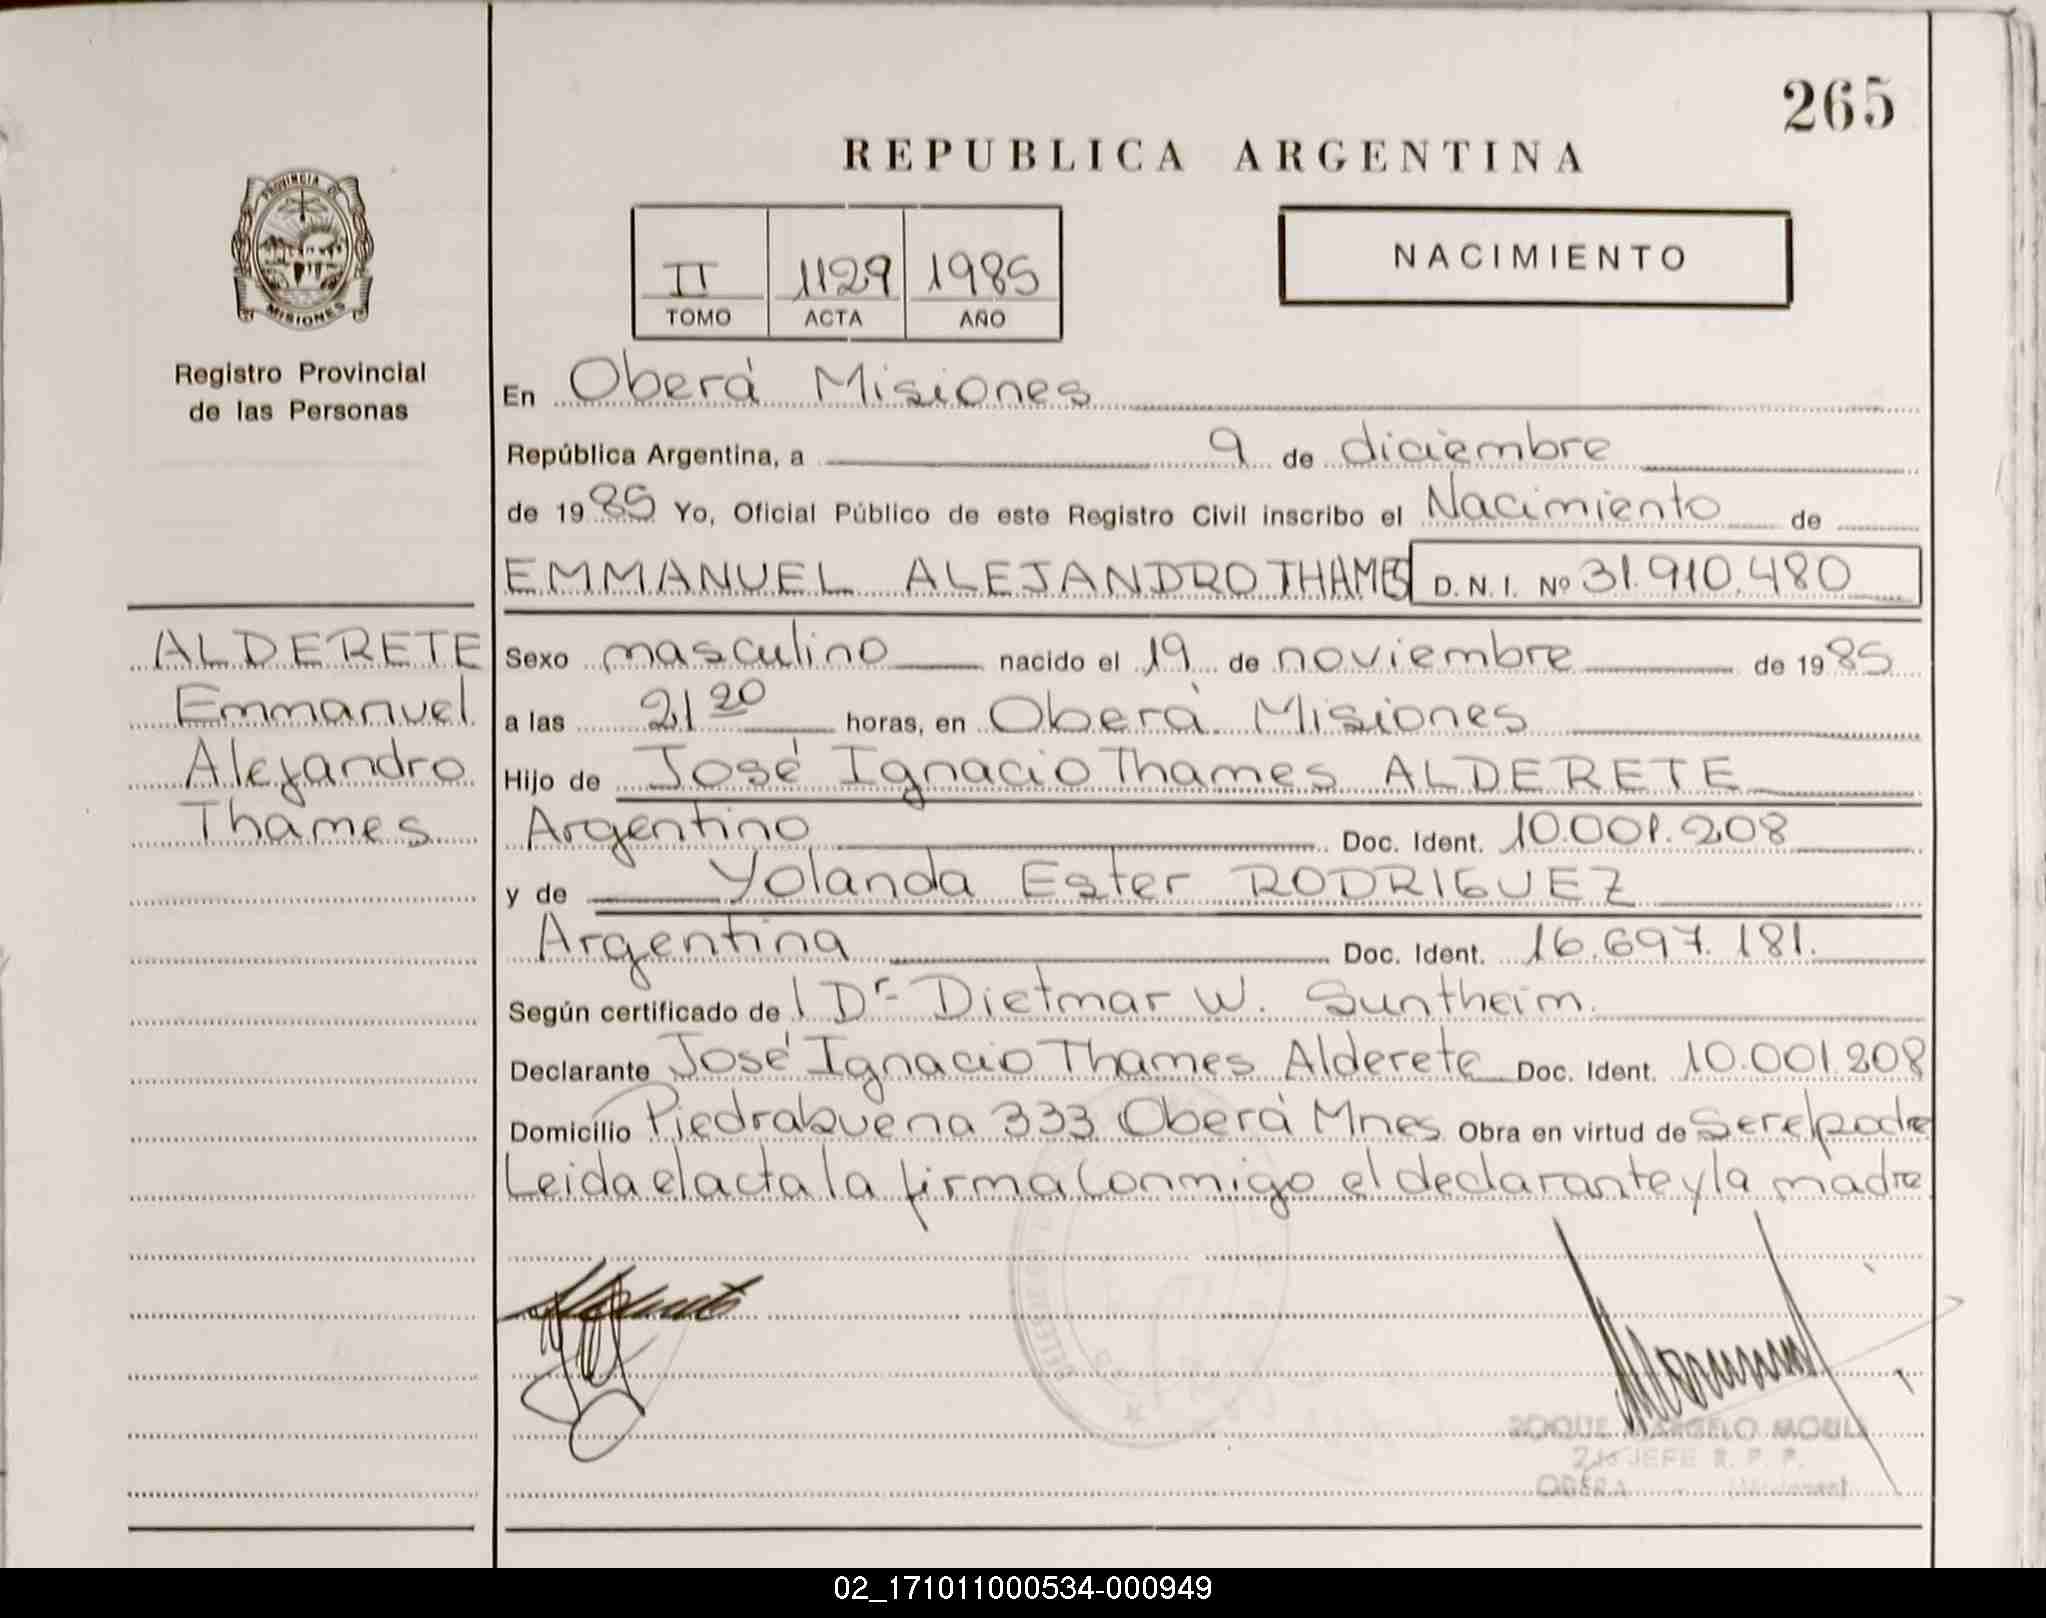 265
REPUBLICA ARGENTINA
PROVINCIA DE
MISIONES
II 1129 1985
TOMO ACTA AÑO
NACIMIENTO
Registro Provincial
de las Personas
En Oberá Misiones
República Argentina, a 9 de diciembre
de 1985 Yo, Oficial Público de este Registro Civil inscribo el Nacimiento de
EMMANUEL ALEJANDRO THAMES D. N. I. Nº 31.910.480
ALDERETE
Emmanuel
Alejandro
Thames
Sexo masculino nacido el 19 de noviembre de 1985
a las 21 20 horas, en Oberá Misiones
Hijo de José Ignacio Thames ALDERETE
Argentino Doc. Ident. 10.001.208
y de Yolanda Ester RODRIGUEZ
Argentina Doc. Ident. 16.697.181.
Según certificado de l Dr- Dietmar W. Suntheim.
Declarante José Ignacio Thames Alderete Doc. Ident. 10.001.208
Domicilio Piedrabuena 333 Oberá Mnes Obra en virtud de Ser el padre
Leida el acta la firma conmigo el declarante y la madre
ROQUE
2do JEFE R. P. P.
OBERA (Misiones)
02_171011000534-000949